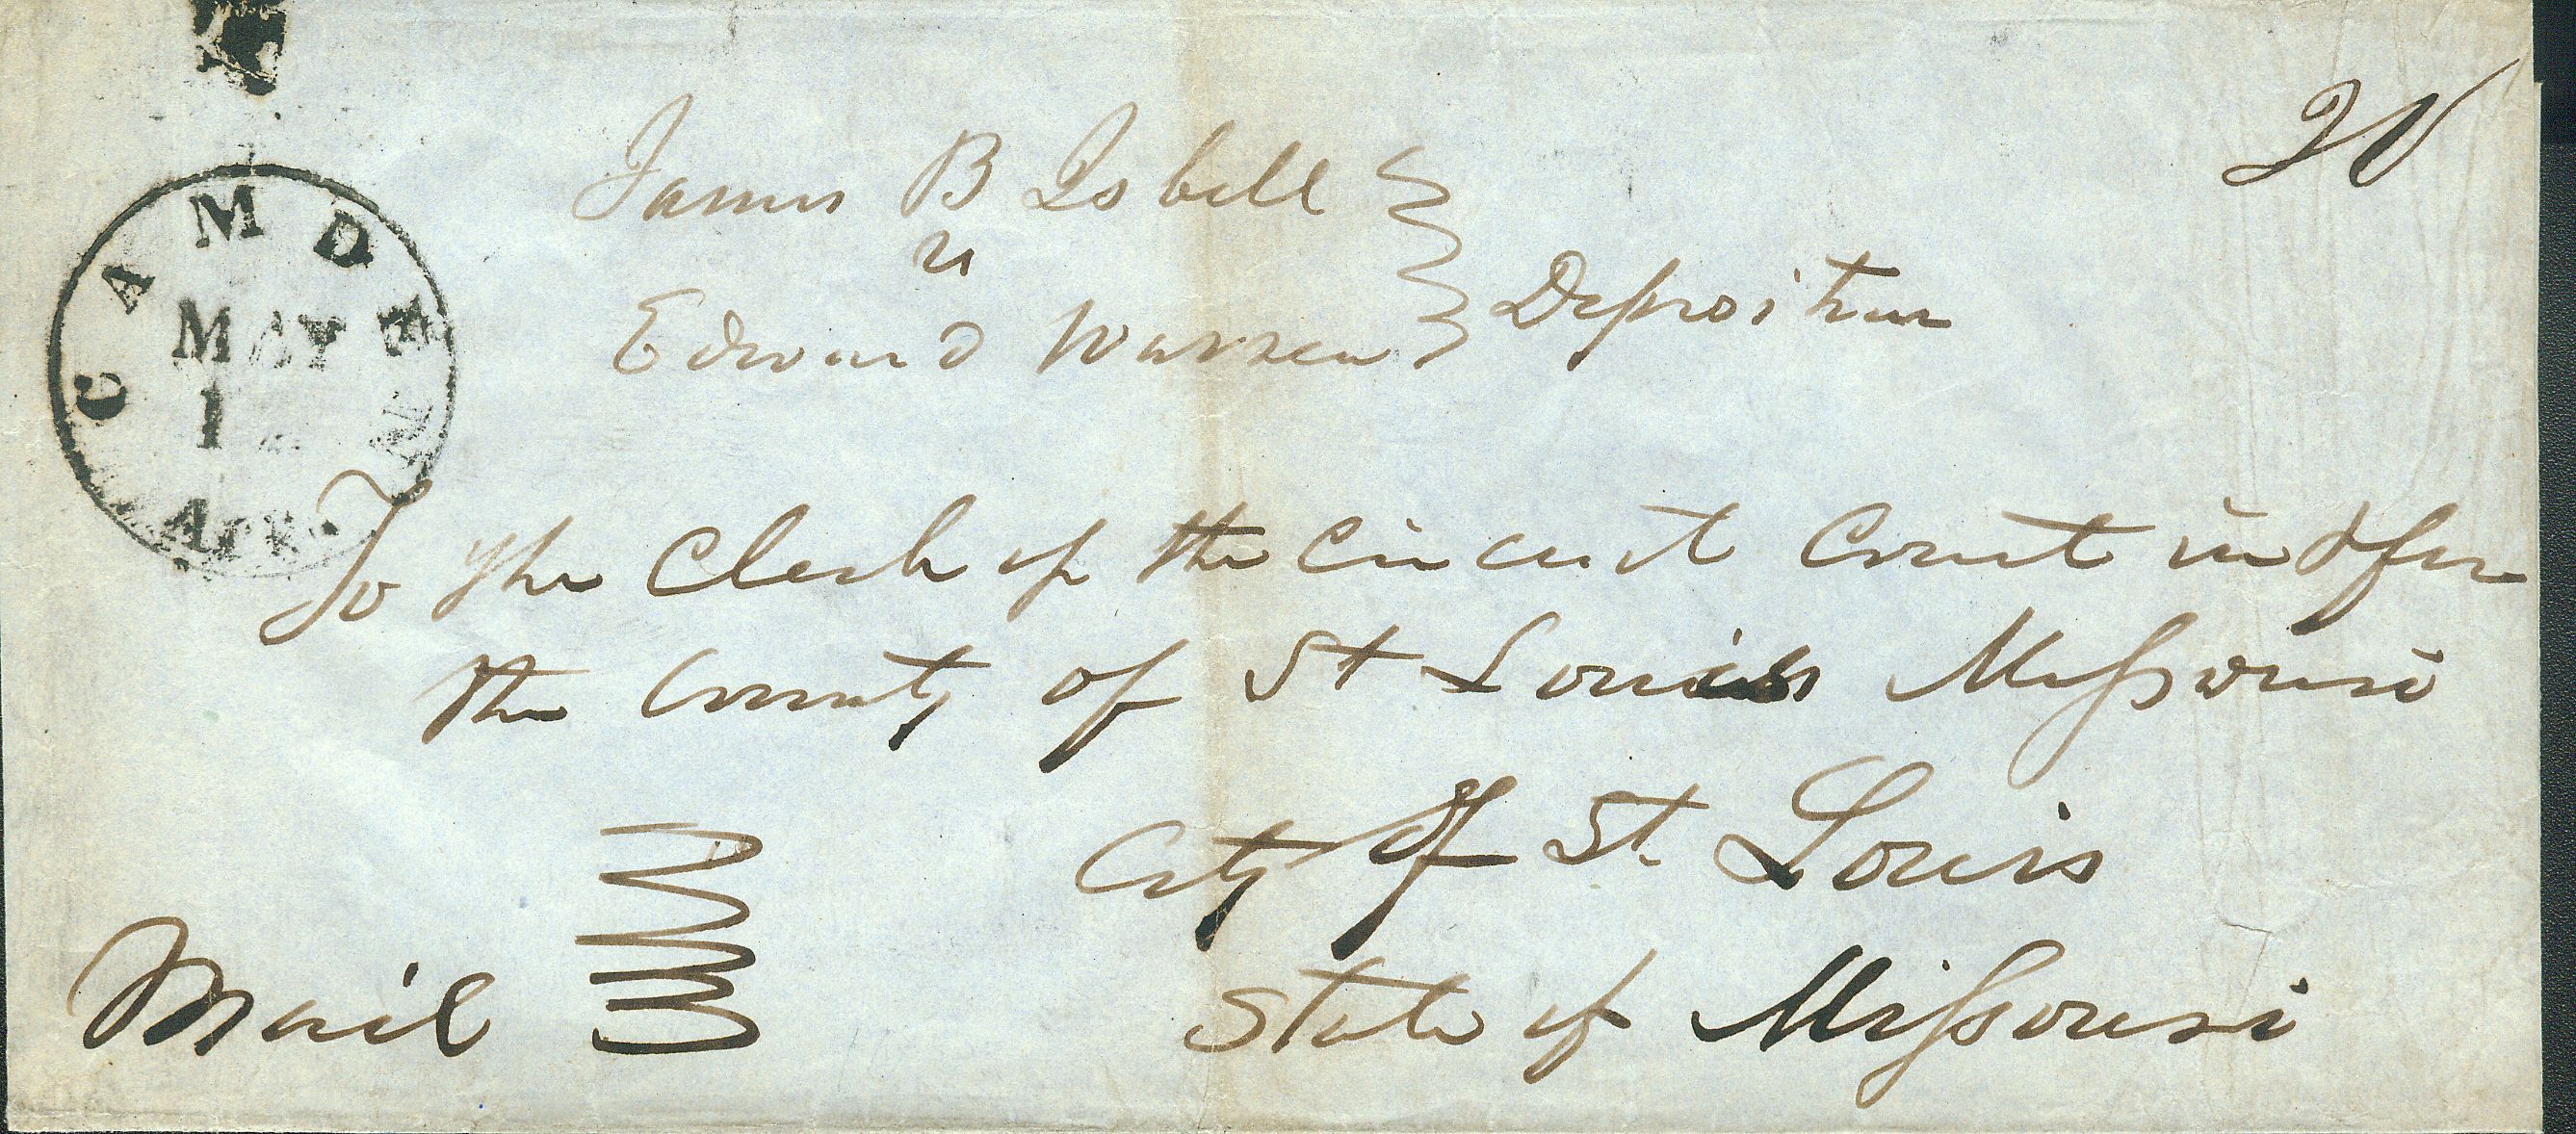 20
James B Isbell
vs
Edward Warren
Deposition
CAMDEN
MAY
1
ARK.
To the Clerk of the Circuit Court in & for
the County of St Louis Missouri
City of St. Louis
State of Missouri
Mail